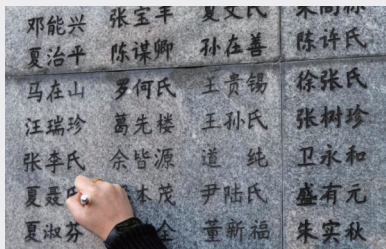 邓能兴 张宝羊 夏文氏
夏治平 陈谋卿 孙在善 陈许氏
马在山 罗何氏 王贵锡 徐张氏
汪瑞珍 葛先楼 王孙氏 张树珍
张李氏 余皆源 道纯 卫永和
夏聂 本茂 尹陆氏 盛有元
夏淑芬 全 董新福 朱实秋